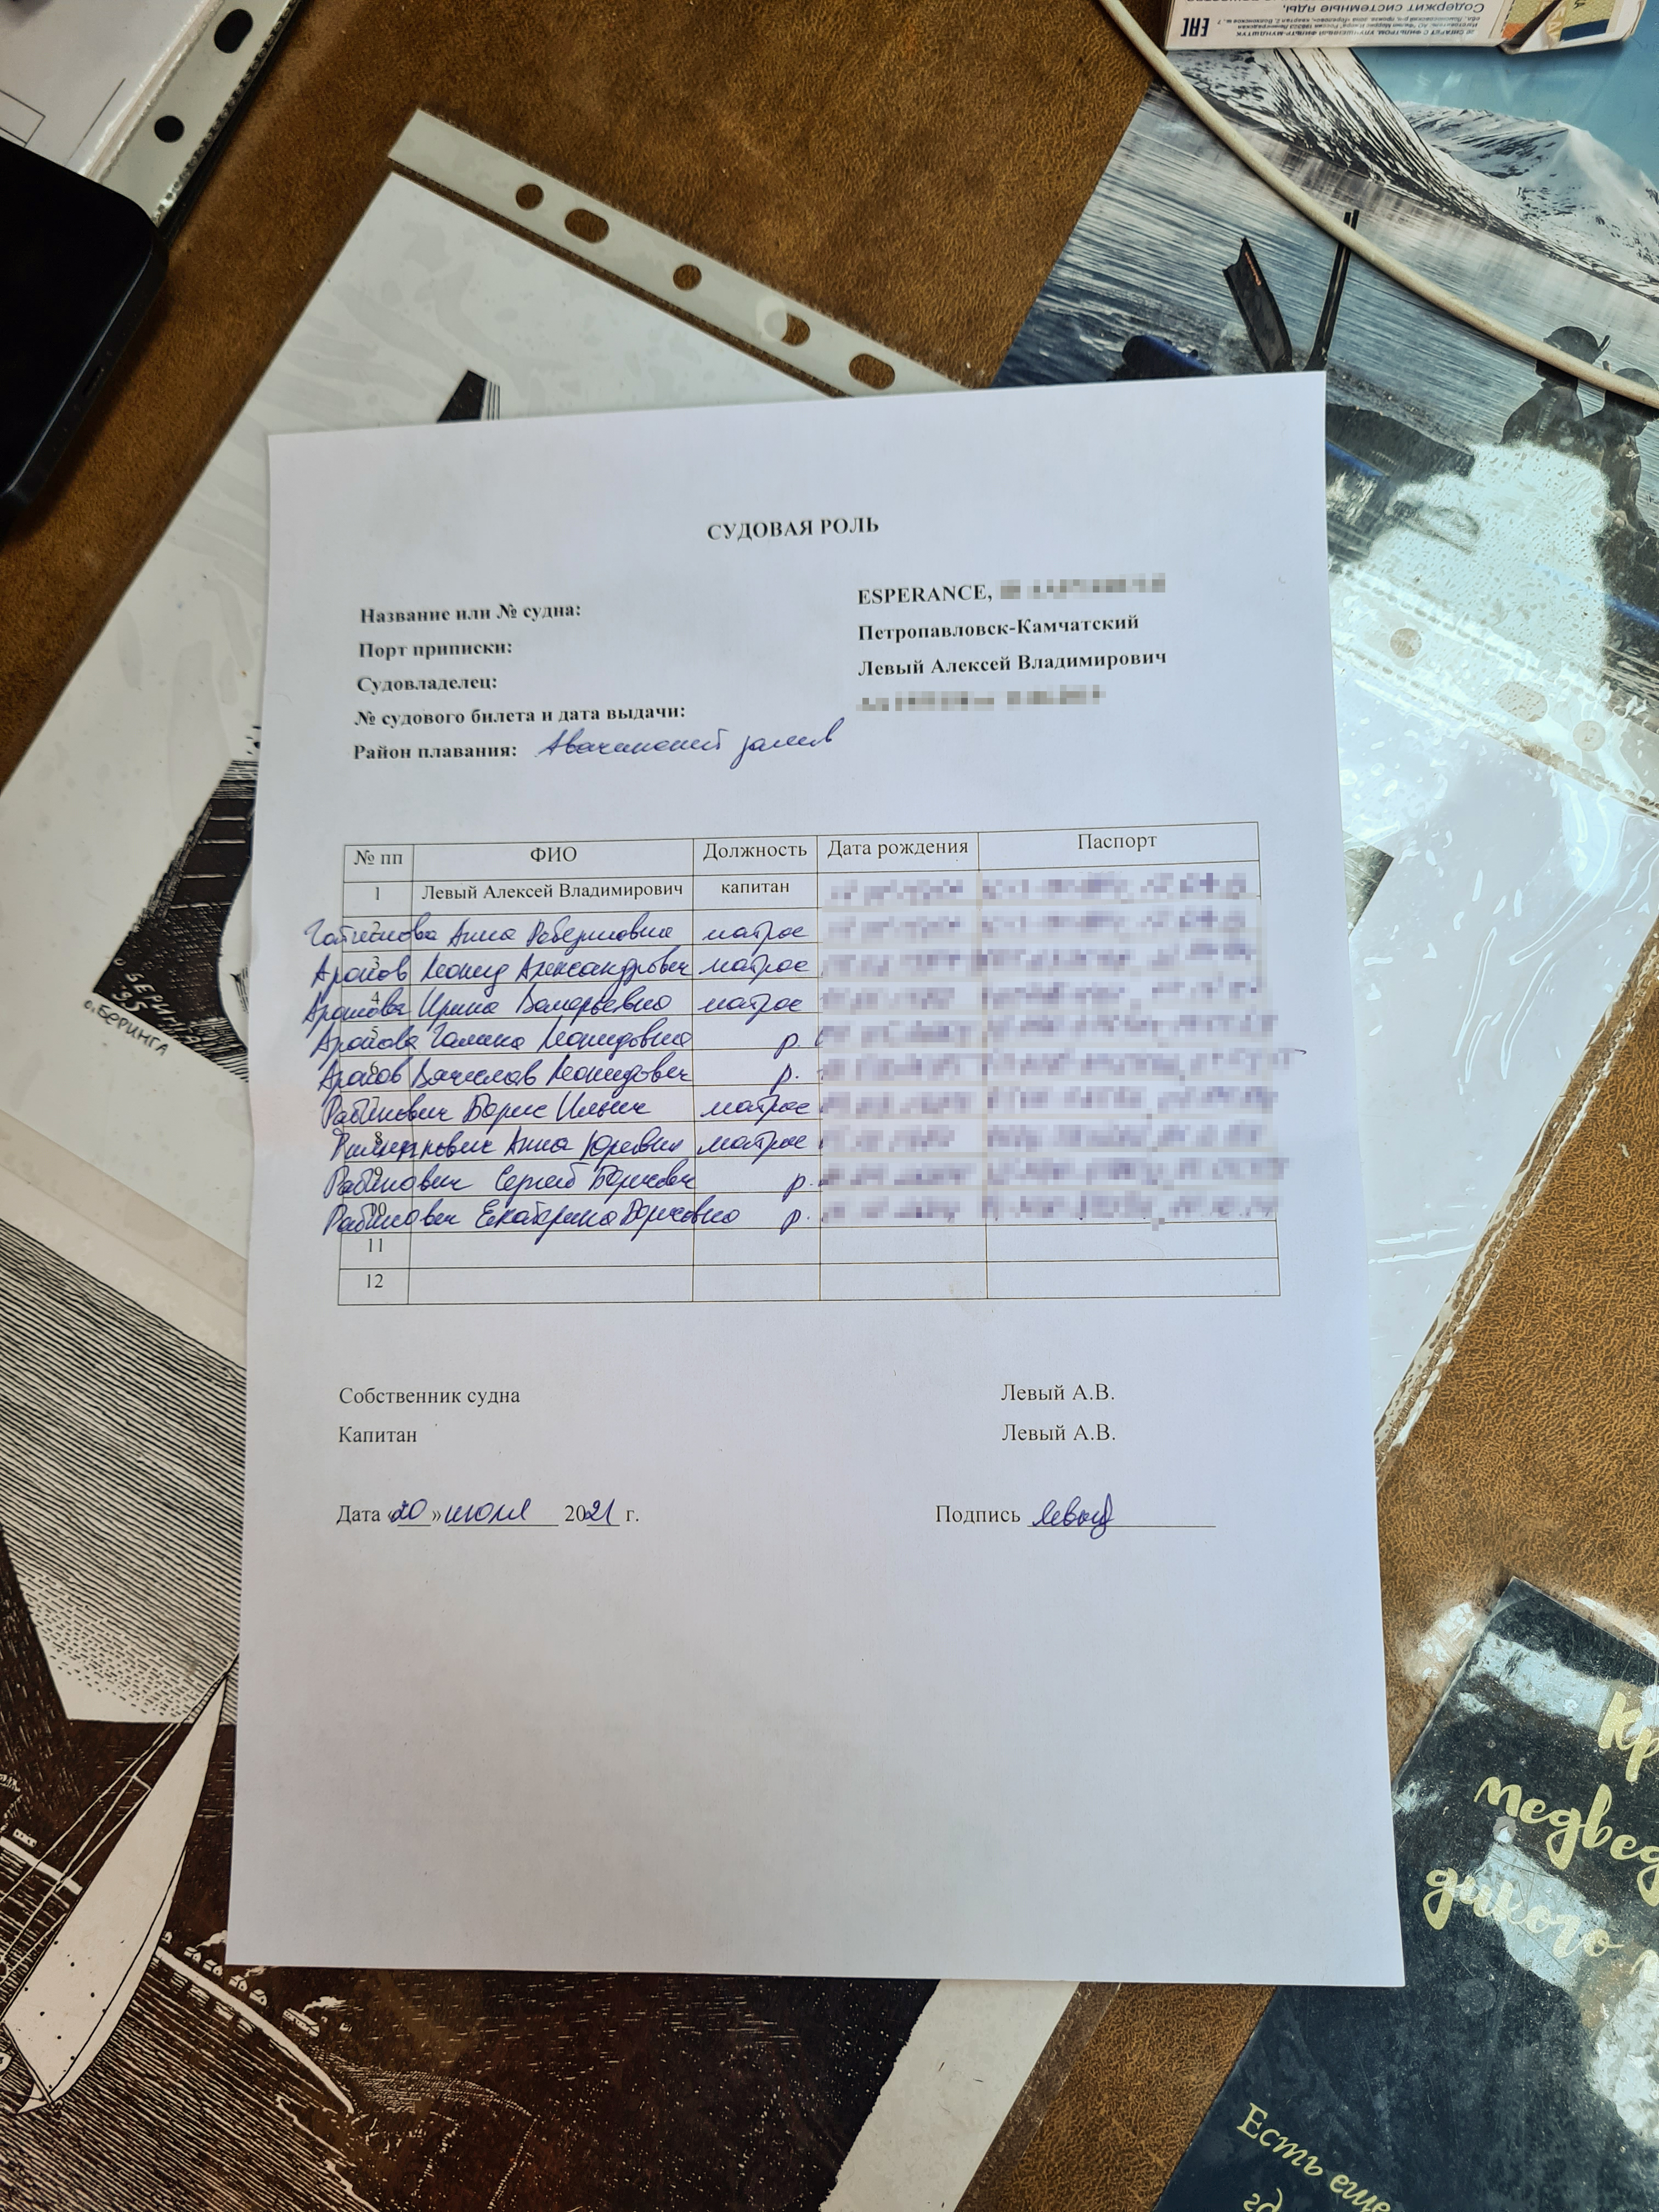 Содержит системные яды,
EAC
СУДОВАЯ РОЛЬ
Название или № судна: ESPERANCE,
Порт приписки: Петропавловск-Камчатский
Судовладелец: Левый Алексей Владимирович
№ судового билета и дата выдачи:
Район плавания: Авачинский залив
№ пп ФИО Должность Дата рождения Паспорт
1 Левый Алексей Владимирович капитан
2 Анна Робертовна матрос
3 Леонид Александрович матрос
4 Ирина Валерьевна матрос
5 Галина Леонидовна р.
6 Вячеслав Леонидович р.
Рабинович Борис Ильич матрос
8 Анна Юрьевна матрос
9 Рабинович Сергей Борисович р.
10 Рабинович Екатерина Борисовна р.
11
12
Собственник судна Левый А.В.
Капитан Левый А.В.
Дата «20» июля 2021 г. Подпись Левый
БЕРИНГА
95
о.БЕРИНГА
медвед
дикого
Есть еще